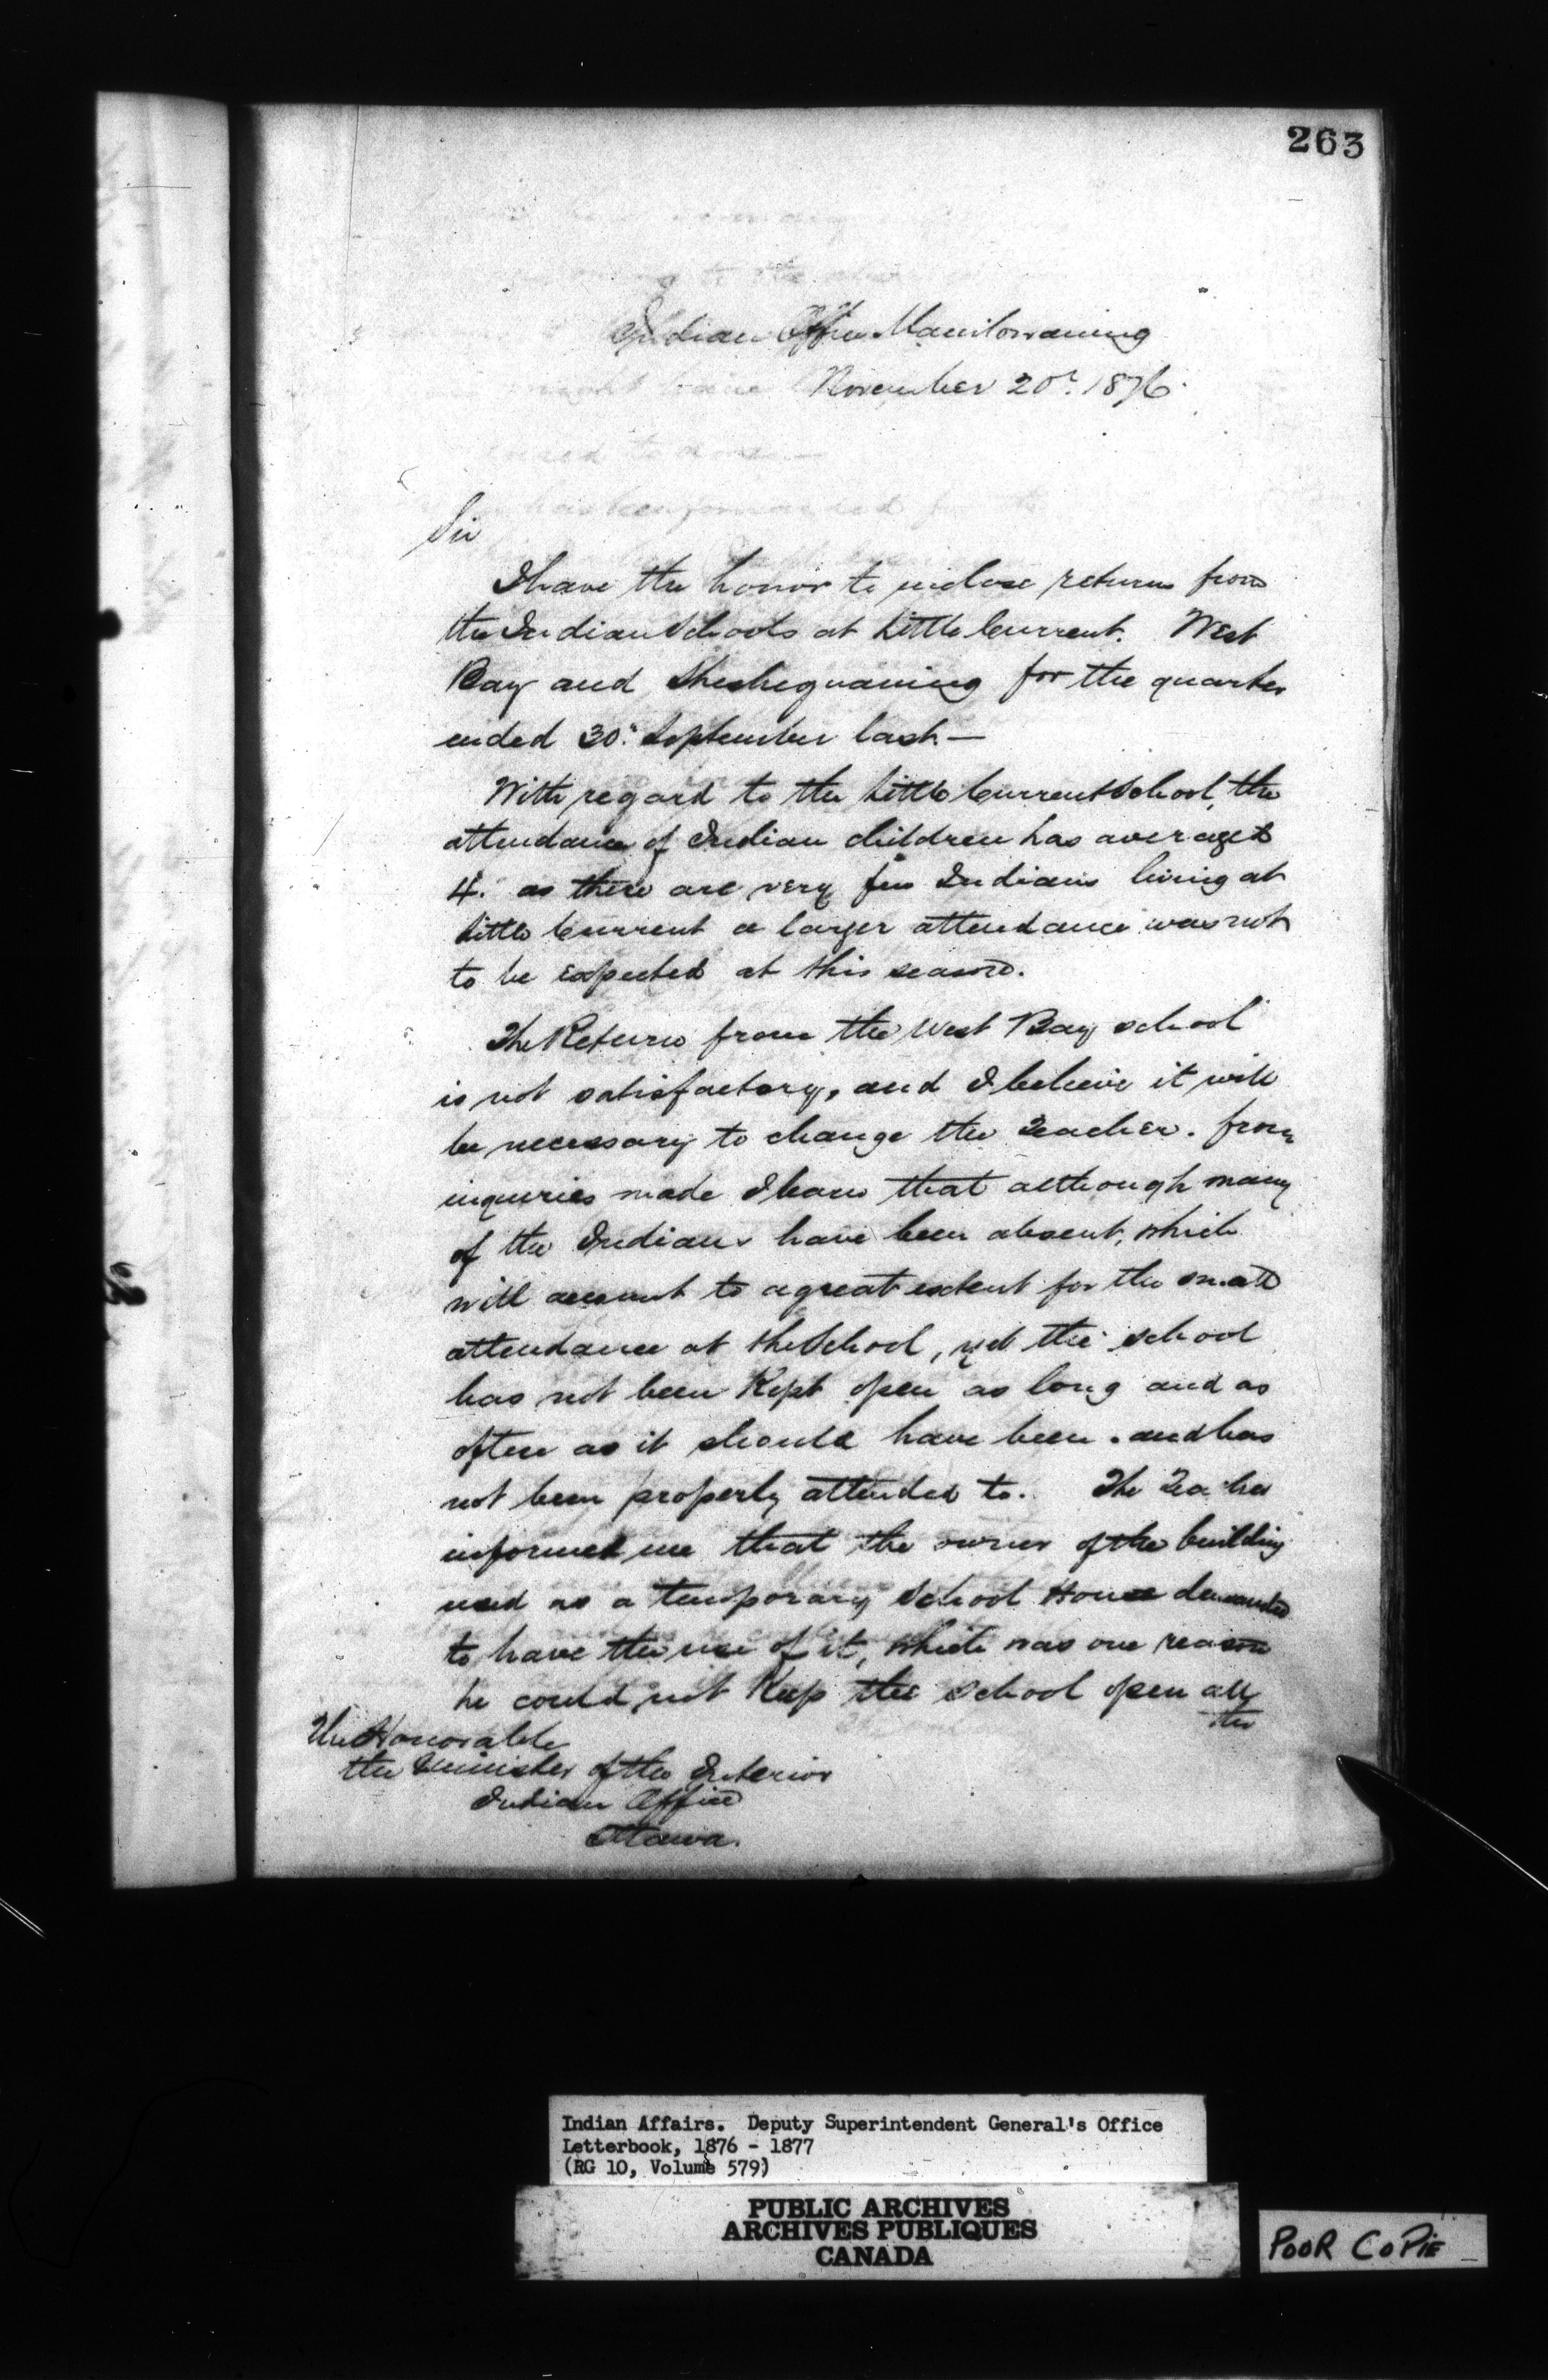 263
Indian Office Manitowaning
November 20th 1876.
Sir
I have the honor to inclose returns from
the Indian Schools at Little Current. West
Bay and Sheshegwaning for the quarter
ended 30th September last—
With regard to the Little Current School, the
attendance of Indian children has averaged
4. as there are very few Indians living at
Little Current a larger attendance was not
to be expected at this season.
The Return from the West Bay school
is not satisfactory, and I believe it will
be necessary to change the Teacher. from
inquiries made I learn that although many
of the Indians have been absent, which
will account to a great extent for the small
attendance at the School, yet the school
has not been Kept open as long and as
often as it should have been. and has
not been properly attended to. The Teacher
informed me that the owner of the building
used as a temporary School House demanded
to have the use of it, which was one reason
he could not Keep the school open all
the
The Honorable
the Minister of the Interior
Indian Office
Ottawa.
Indian Affairs. Deputy Superintendent General's Office
Letterbook, 1876 - 1877
(RG 10, Volume 579)
PUBLIC ARCHIVES
ARCHIVES PUBLIQUES
CANADA
POOR COPIE